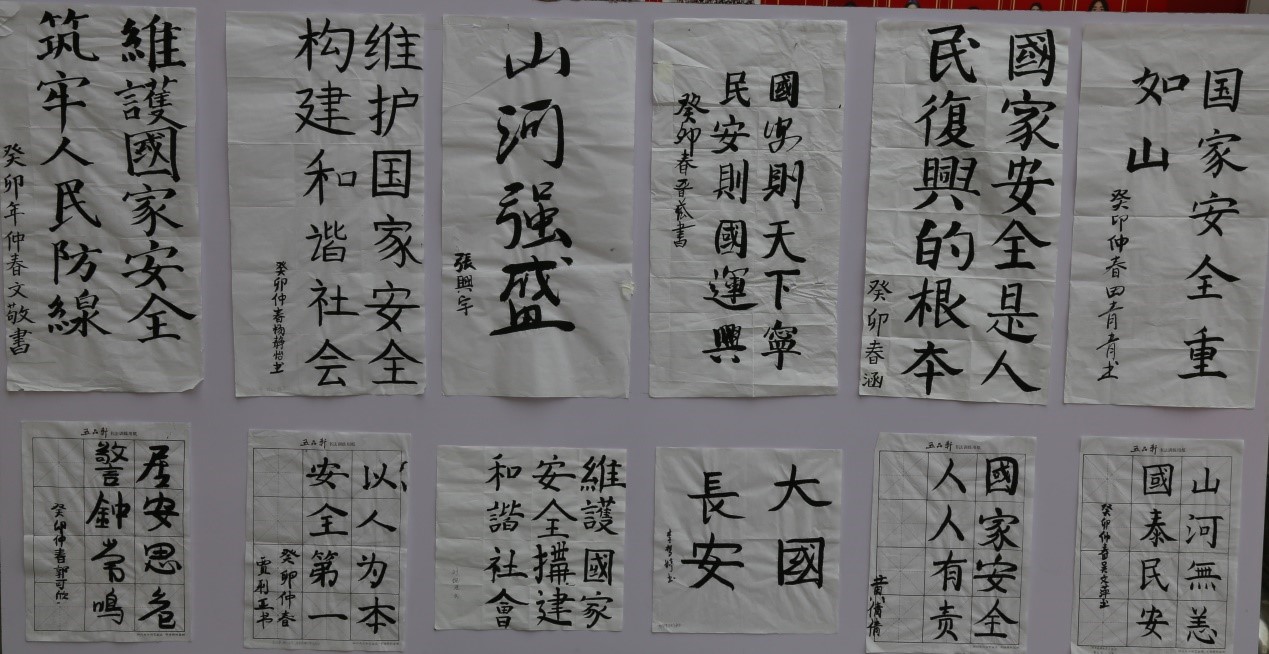 維護國家安全
筑牢人民防線
癸卯年仲春文敬書
维护国家安全
构建和谐社会
癸卯仲春杨静怡书
山河强盛
張興宇
國安則天下寧
民安則國運興
癸卯春 書
國家安全是人
民復興的根本
癸卯春涵
国家安全重
如山
癸卯仲春田青青书
五品轩
居安思危
警鈡常鳴
癸卯仲春郭可欣
五品轩
以人为本
安全第一
癸卯仲春
贾利亚书
維護國家
安全構建
和諧社會
大國
長安
五品轩
國家安全
人人有责
黄倩倩
五品轩
山河無恙
國泰民安
癸卯仲春吴文萍书